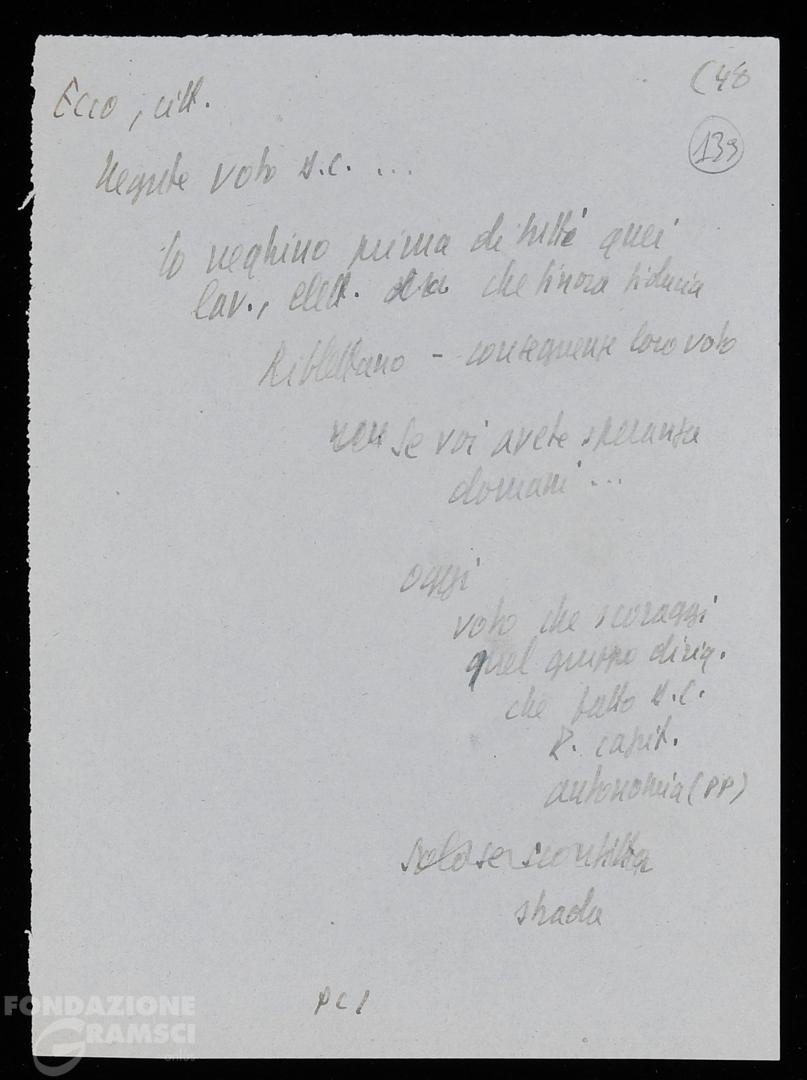 (48
139
Ecco, citt.
Negate voto D.C. ...
lo neghino prima di tutti quei
lav., elett. che finora fiducia
Riflettano – conseguenze loro voto
non se voi avete speranza
domani ...
oggi
voto che scoraggi
quel gruppo dirig.
che fatto D.C.
P. capit.
autonomia (PP)
Solo se sconfitta
strada
PCI
FONDAZIONE
GRAMSCI
onlus